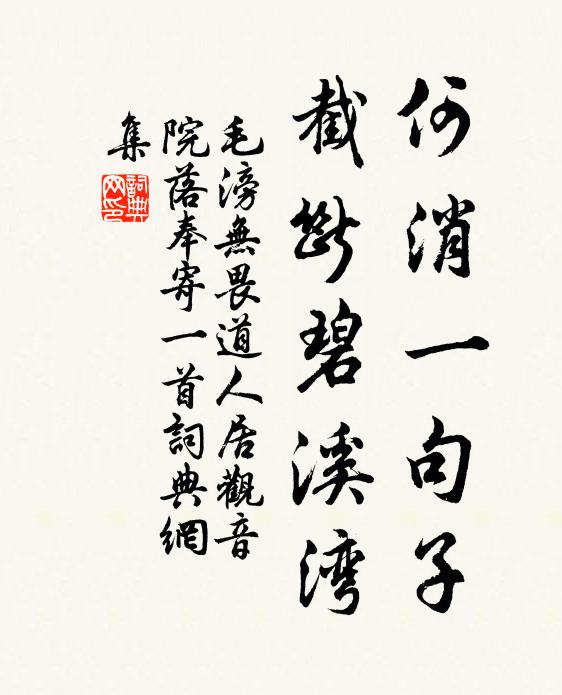 何消一句子
截斷碧溪湾
毛滂無畏道人居觀音
院落奉寄一首詞典網
集
詞典
网印